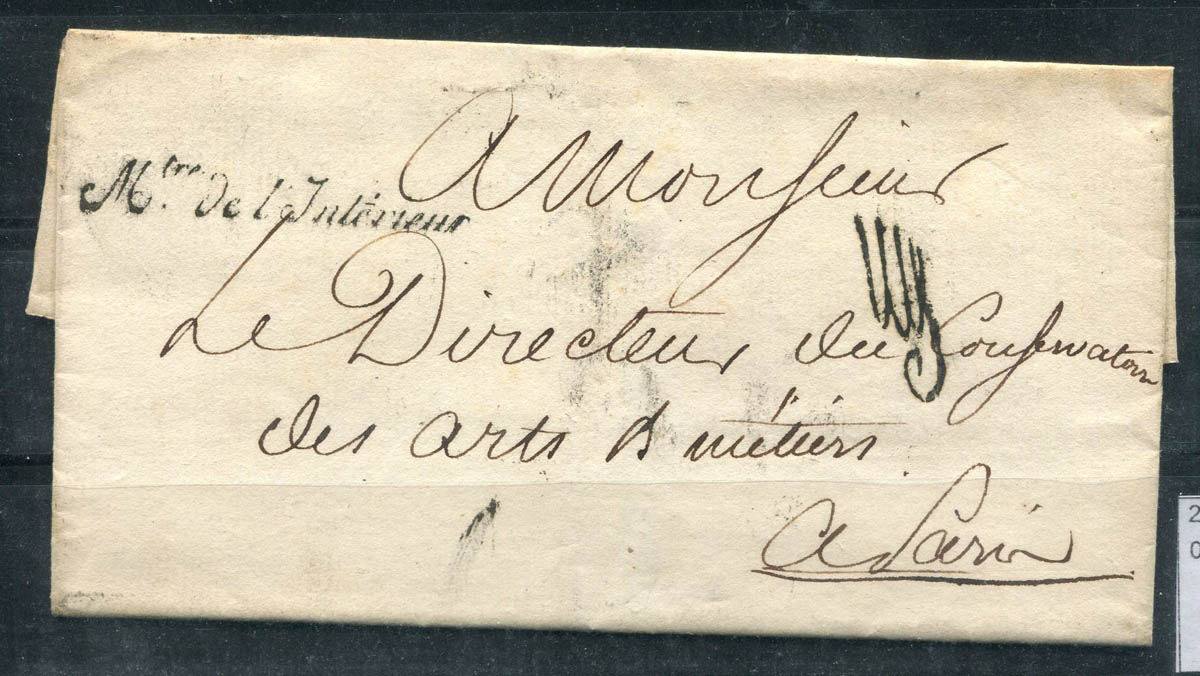 Mtre. De l'Intérieur
A Monsieur
Le Directeur du Conservatoire
des arts & métiers
A Paris
2
0